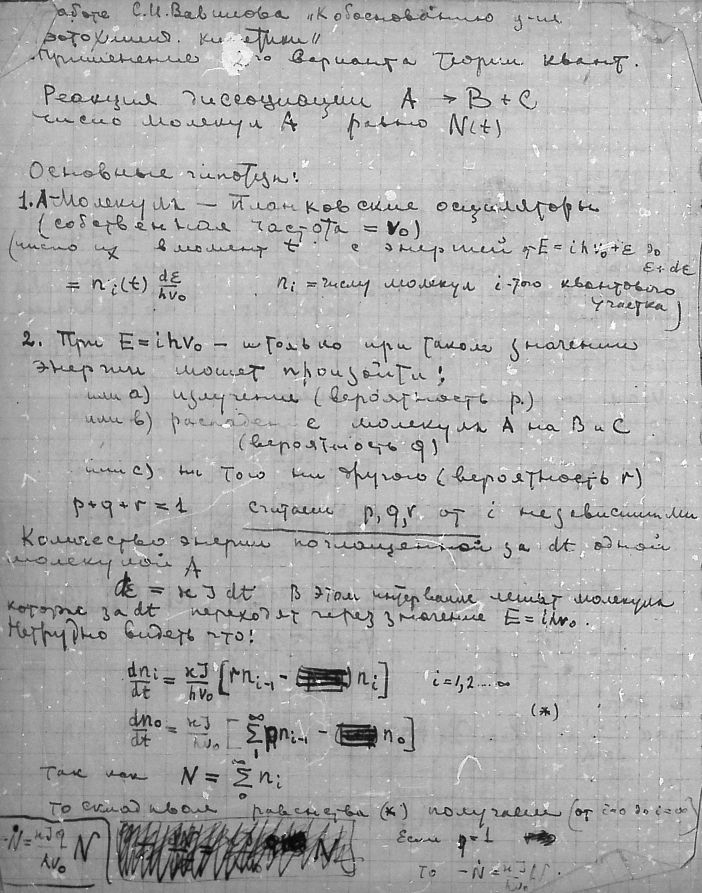 работе С.И. Вавилова „К обоснованию у-ия
фотохимич. кинетики"
Применение 2го варианта теории квант.
Реакция диссоциации A → B + C
число молекул A равно N(t)
Основные гипотезы:
1. A-молекулы — Планковские осцилляторы
(собственная частота = ν₀)
(число их в момент t с энергией от E = ihν₀ + ε до
ε + dε
= nᵢ(t) dε/hν₀ nᵢ = числу молекул i-того квантового
участка)
2. При E = ihν₀ — и только при таком значении
энергии может произойти:
или a) излучение (вероятность p)
или b) молекулы A на B и C
(вероятность q)
или c) ни того ни другого (вероятность r)
p + q + r = 1 считаем p, q, r от i независящими
Количество энергии поглощенной за dt одной
молекулой A
dε = ϰJdt В этом интервале лежат молекулы
которые за dt переходят через значение E = ihν₀.
Нетрудно видеть что:
dnᵢ/dt = ϰJ/hν₀ [rnᵢ₋₁ - nᵢ] i = 1,2 .... ∞
(*)
dn₀/dt = ϰJ/hν₀ [∑₁^∞ pnᵢ₋₁ - n₀]
так как N = ∑₀^∞ nᵢ
то складывая равенства (*) получаем (от i=0 до i=∞)
-Ṅ = ϰJq/hν₀ N Если q = 1
то -Ṅ = ϰJ/hν₀ N.